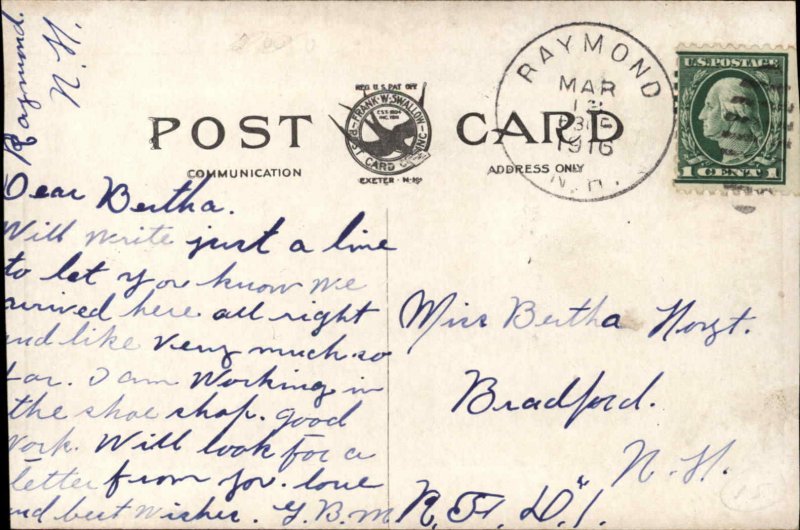 Raymond.
N. H.
RAYMOND
MAR
1916
N.H.
U.S. POSTAGE
1 CENT 1
REG. U.S. PAT. OFF.
FRANK W. SWALLOW
POST CARD CO. INC.
EXETER - N.H.
POST CARD
COMMUNICATION
ADDRESS ONLY
Dear Bertha.
Will write just a line
to let you know we
arrived here all right
and like very much so
far. I am working in
the shoe shop. good
work. Will look for a
letter from you. love
and best wishes. G. B. M
Miss Bertha Hoyt.
Bradford.
N. H.
R. F. D. 1.